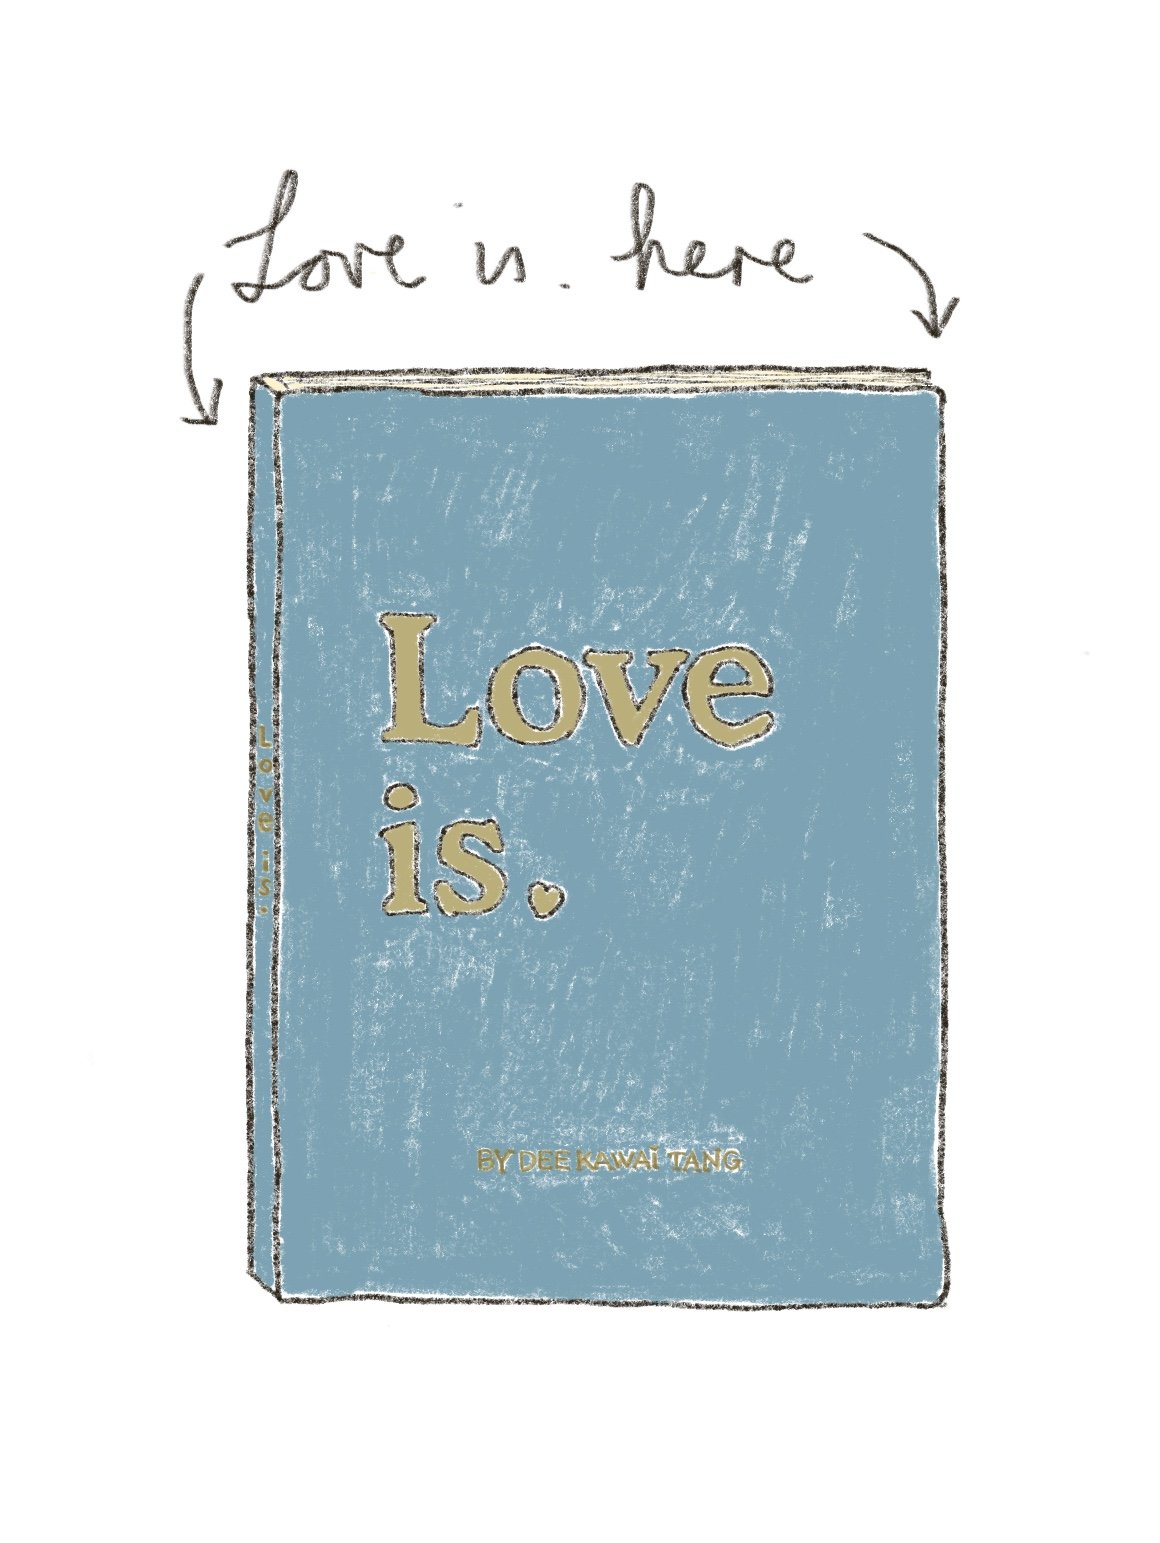 Love is. here
Love
is.
Love is.
BY DEE KAWAI TANG